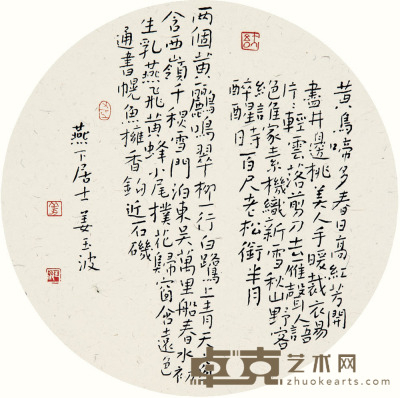 黄鳥啼多春日高紅芳開
盡井邊桃美人手暖裁衣易
片片輕雲落剪刀去雁聲人語
絕誰家素機織新雪秋山野客
醉醒時百尺老松銜半月
兩個黄鸝鳴翠柳一行白鷺上青天窗
含西嶺千秋雪門泊東吳萬里船春水初
生乳燕飛黄蜂小尾撲花歸窗含遠色
通書幌魚擁香鉤近石磯
燕下居士姜玉波
卓克艺术网
zhuokearts.com